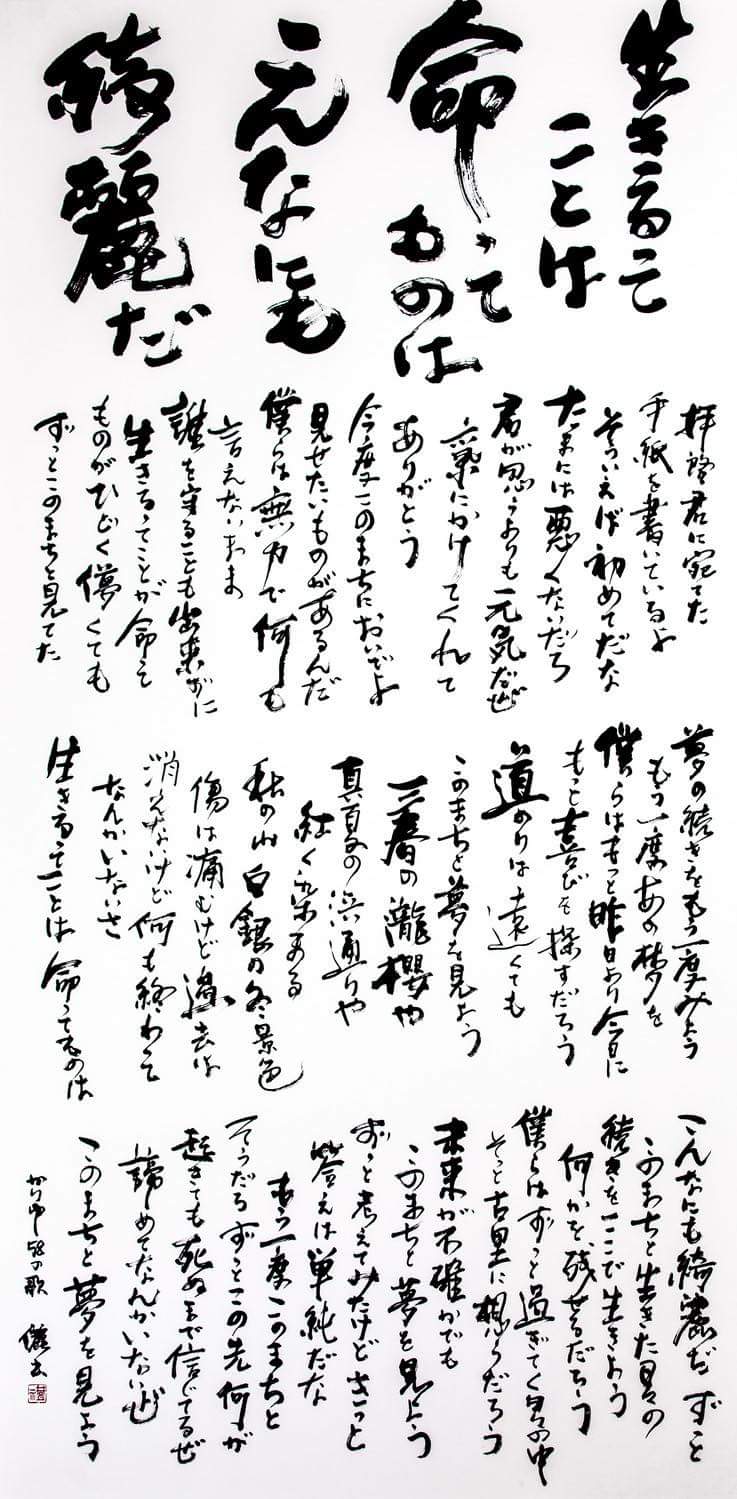 生きるって
ことは
命って
ものは
こんなにも
綺麗だ
拝啓君に宛てた
手紙を書いているよ
そういえば初めてだな
たまには悪くないだろ
君が思うよりも元気だぜ
気にかけてくれて
ありがとう
今度このまちにおいでよ
見せたいものがあるんだ
僕らは無力で何も
言えないまま
誰を守ることも出来ずに
生きるってことが命って
ものがひどく儚くても
ずっとこのまちを見てた
夢の続きをもう一度みよう
もう一度あの夢を
僕らはきっと昨日より今日に
もっと喜びを探すだろう
道のりは遠くても
このまちと夢を見よう
三春の瀧櫻や
真夏の浜通りや
紅く染まる
秋の山白銀の冬景色
傷は痛むけど過去は
消えないけど何も終わって
なんかいないさ
生きるってことは命ってものは
こんなにも綺麗だずっと
このまちと生きた日々の
続きをここで生きよう
何かを残せるだろう
僕らはずっと過ぎてく日々の中
そっと古里に想うだろう
未来が不確かでも
このまちと夢を見よう
ずっと考えてみたけどきっと
答えは単純だな
もう一度このまちと
そうだろずっとこの先何が
起きても死ぬまで信じてるぜ
諦めてなんかいないぜ
このまちと夢を見よう